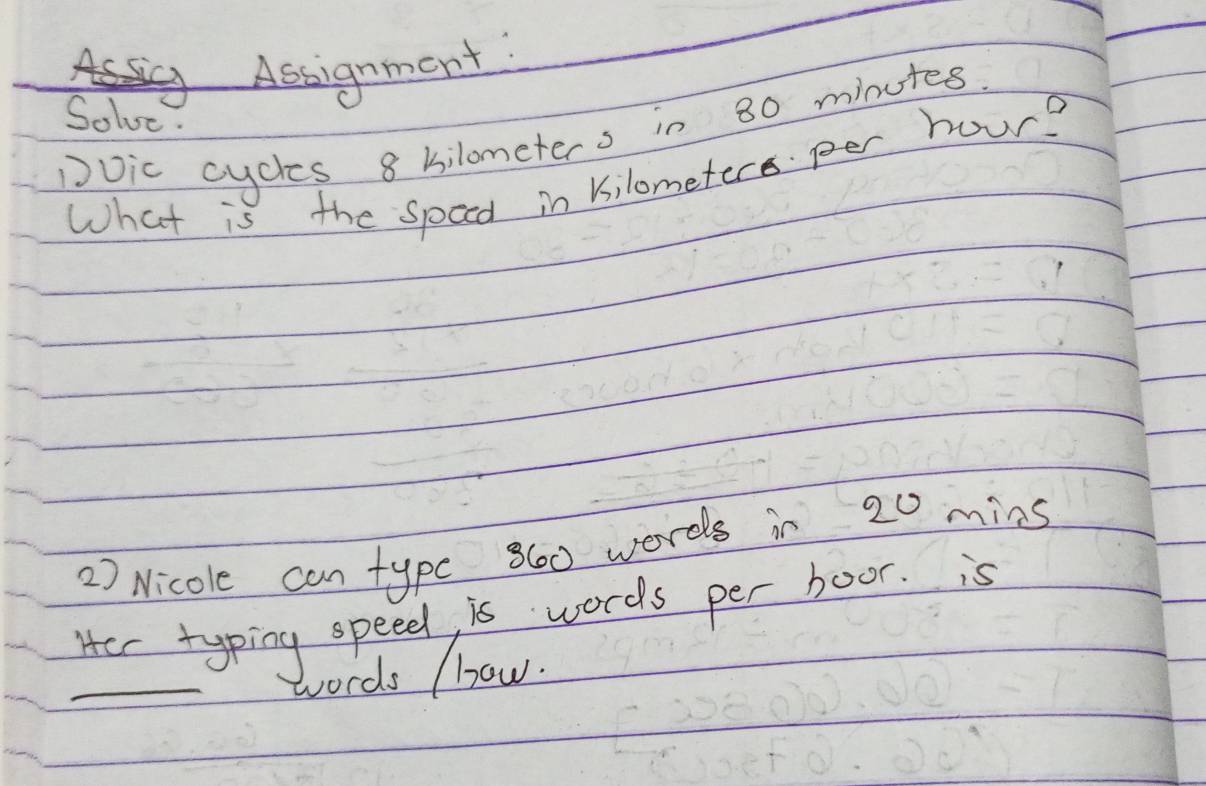 Assig Assignment :
Solve.
1) Vic cycles 8 kilometers in 80 minutes.
What is the speed in kilometers per hour?
2) Nicole can type 360 words in 20 mins
Her typing speed, is words per hoor. is
______ words / how.